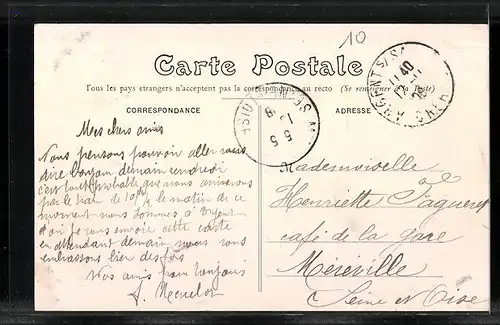 10
Carte Postale
Tous les pays étrangers n'acceptent pas la correspondance au recto (Se renseigner à la Poste)
CORRESPONDANCE
ADRESSE
Mes chers amis
Nous pensons pouvoir aller vous
dire bonjour demain vendredi
c'est tout probable que nous arriverons
par le train de le matin de ce
moment nous sommes à Argent
d'où je vous envoie cette carte
en attendant demain nous vous
embrassons bien des fois
Vos amis pour toujours
Mademoiselle
Henriette
café de la gare
Méréville
Seine et Oise